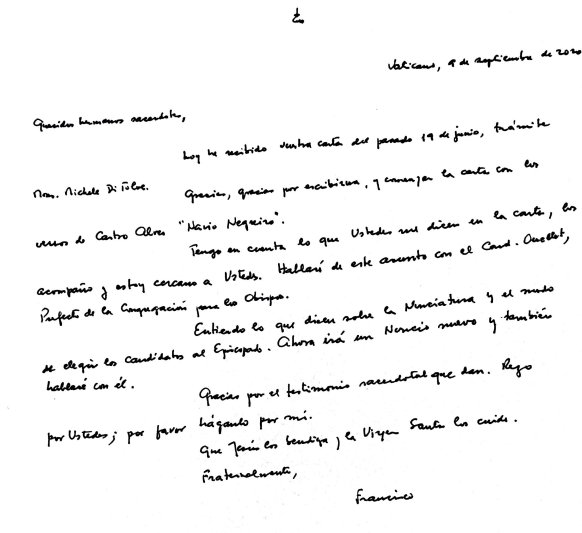 Vaticano, 9 de septiembre de 2020
Queridos hermanos sacerdotes,
hoy he recibido vuestra carta del pasado 19 de junio, trámite
Mons. Michele Di Tolve.
Gracias, gracias por escribirme, y comenzar la carta con los
versos de Castro Alves "Navio Negreiro".
Tengo en cuenta lo que Ustedes me dicen en la carta, los
acompaño y estoy cercano a Ustedes. Hablaré de este asunto con el Card. Ouellet,
Prefecto de la Congregación para los Obispos.
Entiendo lo que dicen sobre la Nunciatura y el modo
de elegir los candidatos al Episcopado. Ahora irá un Nuncio nuevo y también
hablaré con él.
Gracias por el testimonio sacerdotal que dan. Rezo
por Ustedes; por favor háganlo por mí.
Que Jesús los bendiga y la Virgen Santa los cuide.
Fraternalmente,
Francisco